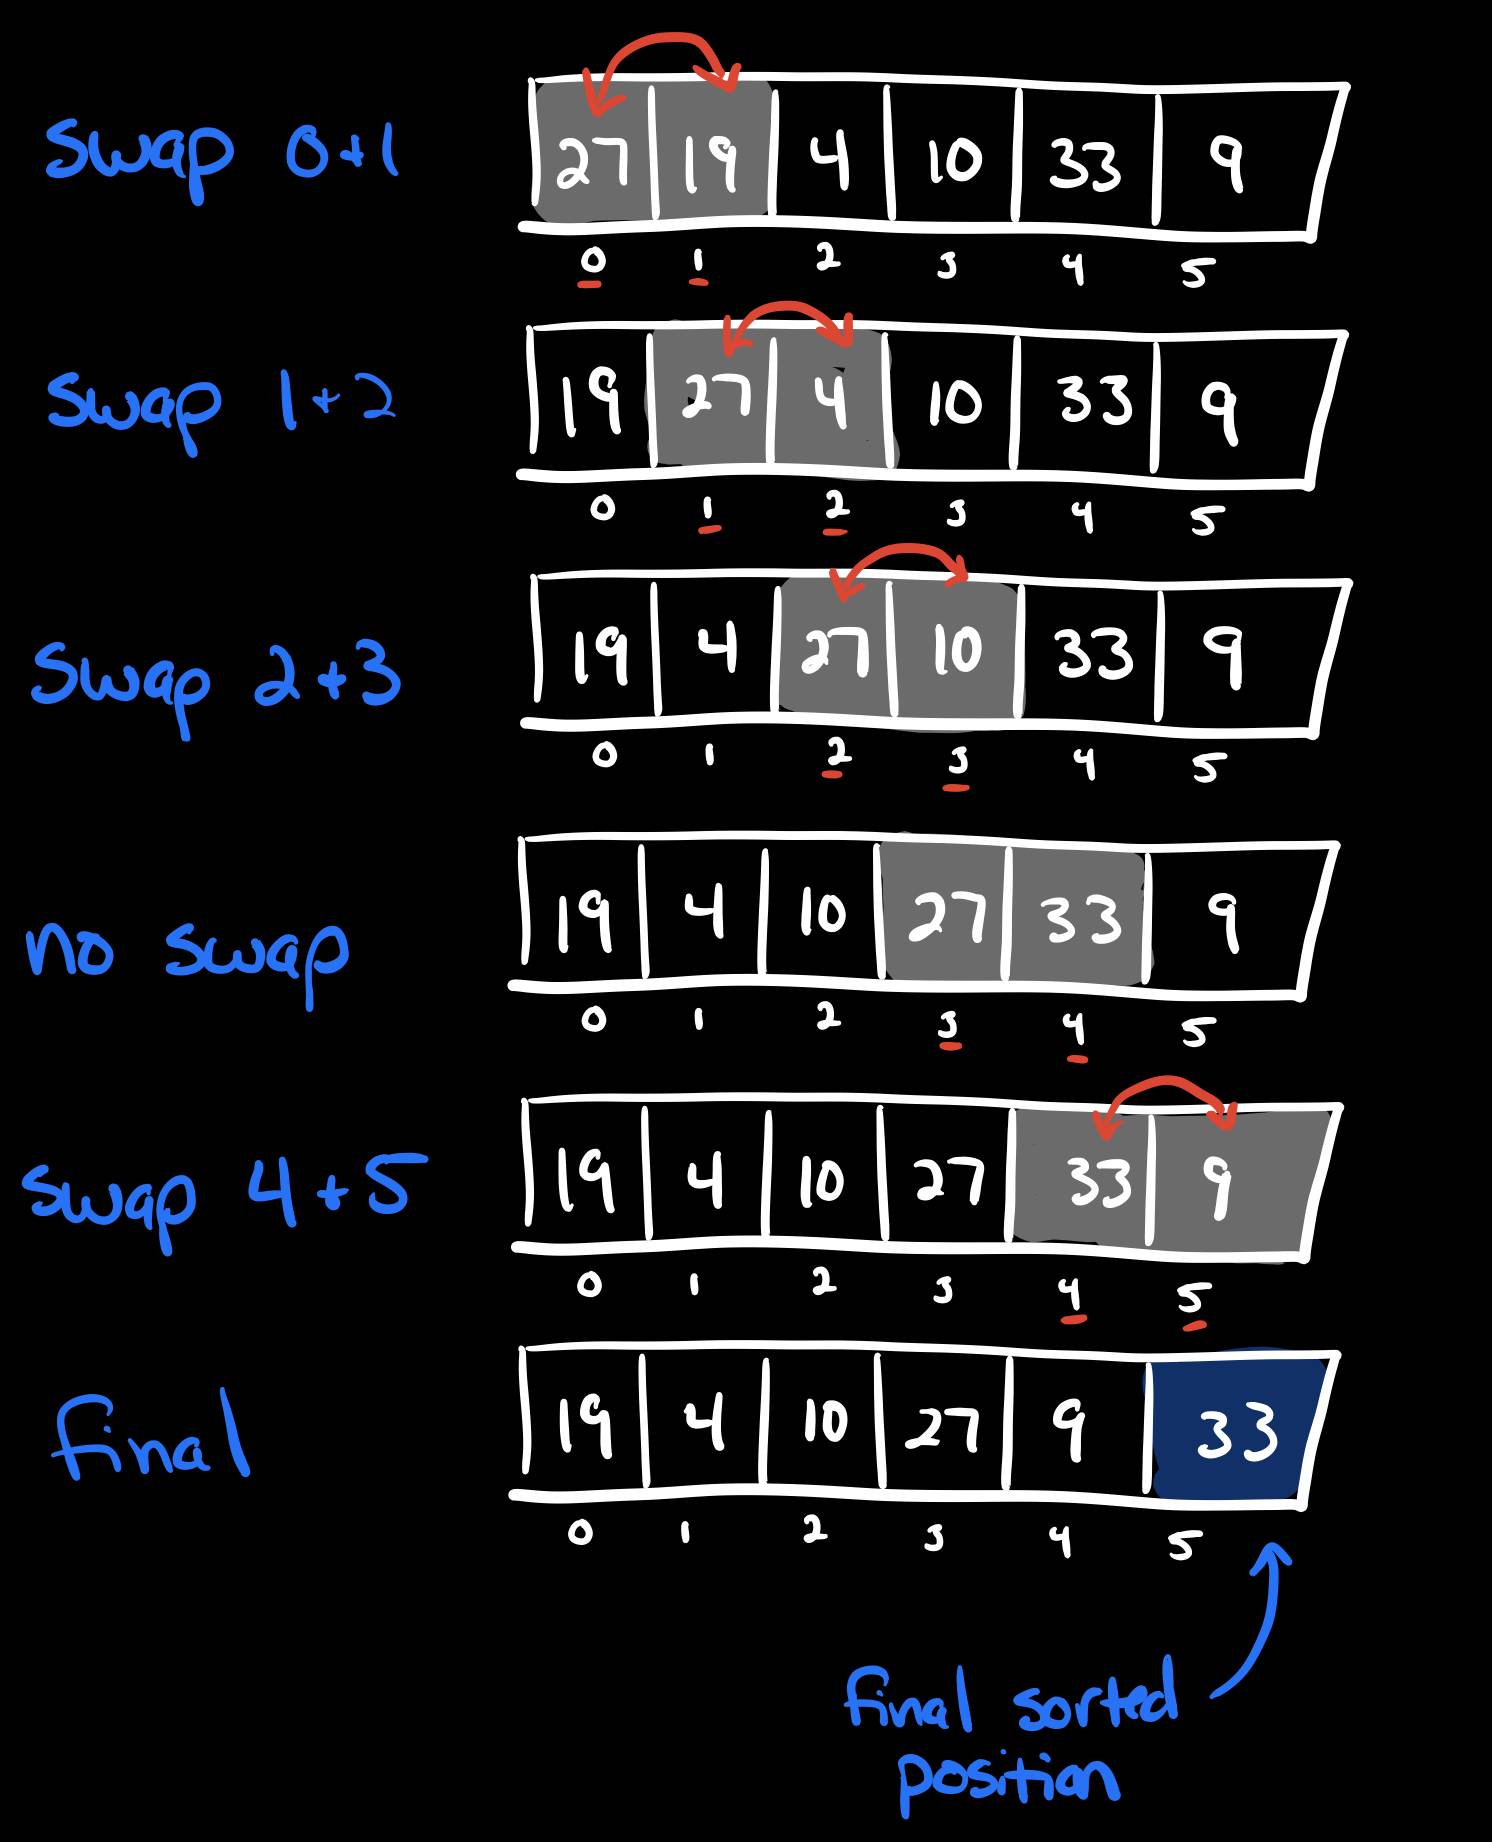 Swap 0+1
27 19 4 10 33 9
0 1 2 3 4 5
Swap 1+2
19 27 4 10 33 9
0 1 2 3 4 5
Swap 2+3
19 4 27 10 33 9
0 1 2 3 4 5
no swap
19 4 10 27 33 9
0 1 2 3 4 5
swap 4+5
19 4 10 27 33 9
0 1 2 3 4 5
final
19 4 10 27 9 33
0 1 2 3 4 5
final sorted
position